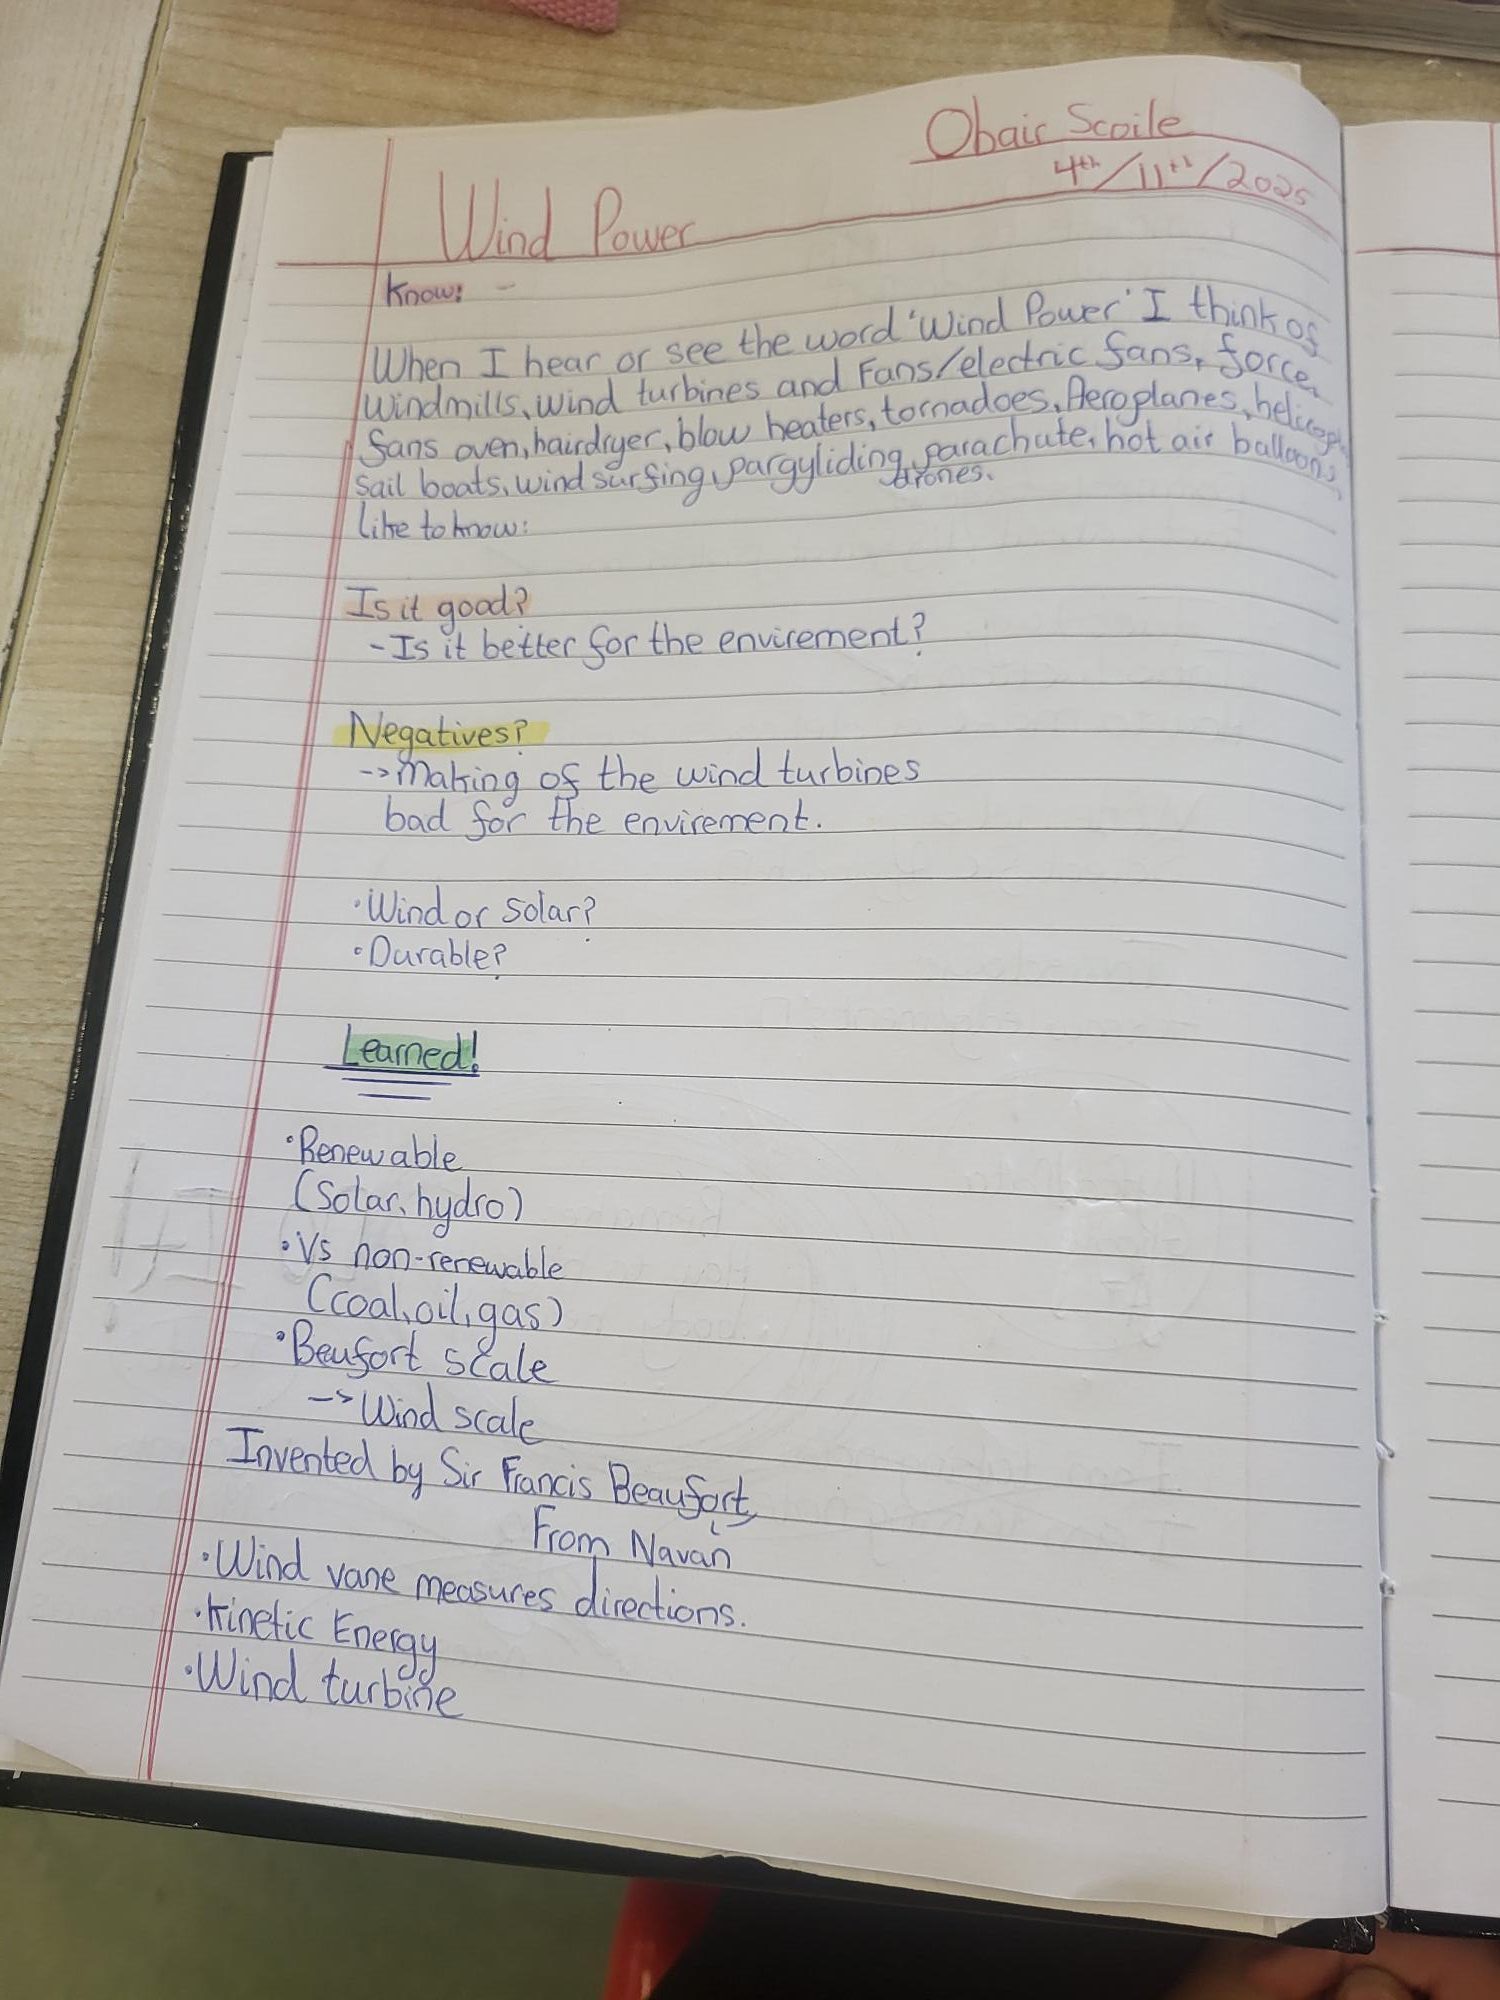 Obair Scoile
4th/11th/2025
Wind Power
Know: -
When I hear or see the word 'Wind Power' I think of
Windmills, wind turbines and Fans/electric fans, force,
fans oven, hairdryer, blow heaters, tornadoes, Aeroplanes,
Sail boats, wind surfing, pargyliding, parachute, hot air balloons,
drones.
like to know:
Is it good?
-Is it better for the envirement?
Negatives?
->Making of the wind turbines
bad for the envirement.
•Wind or Solar?
•Durable?
Learned!
•Renewable
(Solar, hydro)
•Vs non-renewable
(coal, oil, gas)
•Beufort scale
->Wind scale
Invented by Sir Francis Beaufort
From Navan
•Wind vane measures directions.
•Kinetic Energy
•Wind turbine